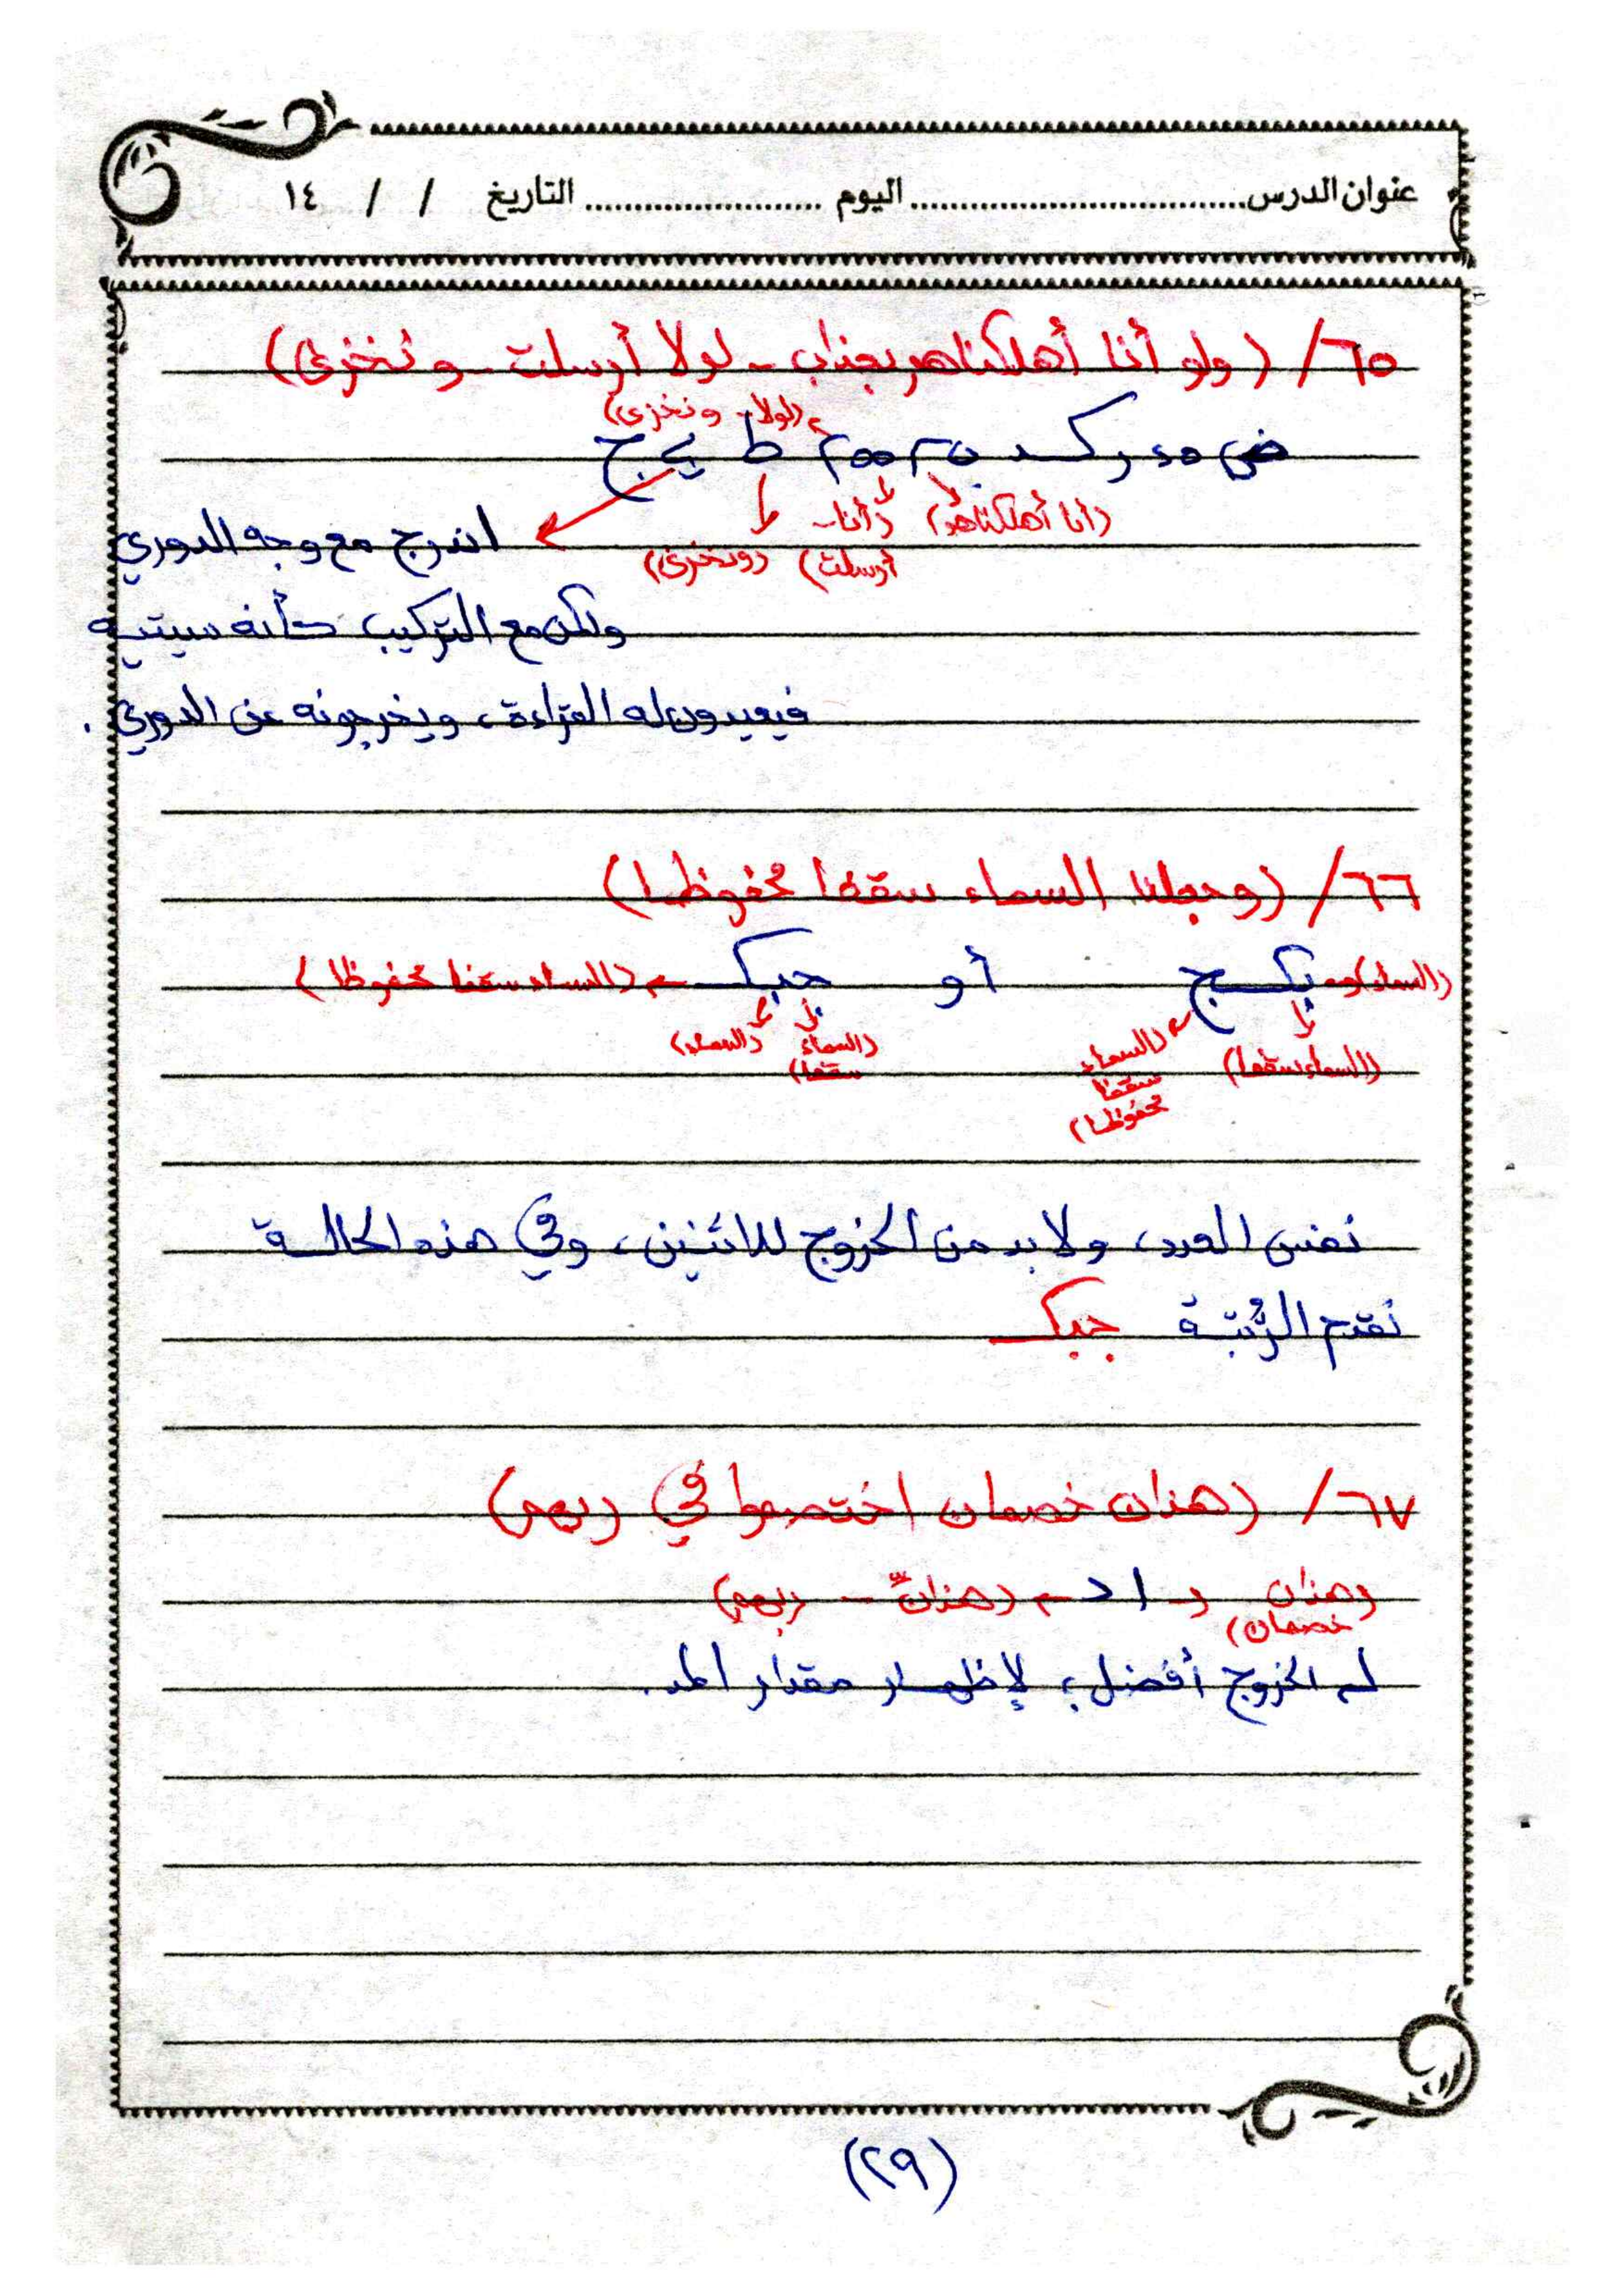 عنوان الدرس................................اليوم ........................التاريخ / / ١٤
٦٥/ (ولو أنا أهلكناهم بعذاب - لولا أرسلت - ونخزى)
(لولا - ونخزى)
ط ي ج
(أنا أهلكناهم) (أنا - أرسلت) (ونخزى)
اندرج مع وجه الدوري
ولكن مع التركيب كأنه سيتيه
فيعيدون له القراءة، ويخرجونه عن الدوري.
٦٦/ (وجعلنا السماء سقفا محفوظا)
(السماء) بكـج أو جبكـ (السماء سقفا محفوظا)
(السماء سقفا) (السماء سقفا محفوظا) (السماء سقفا) (السماء)
نفس العدد، ولا بد من الخروج للاثنين، وفي هذه الحالة
نقدم الرُّتبة جبكـ
٦٧/ (هذان خصمان اختصموا في ربهم)
(هذان خصمان) ا د (هذانّ - ربهم)
الخروج أفضل؛ لإظهار مقدار المد.
(٢٩)